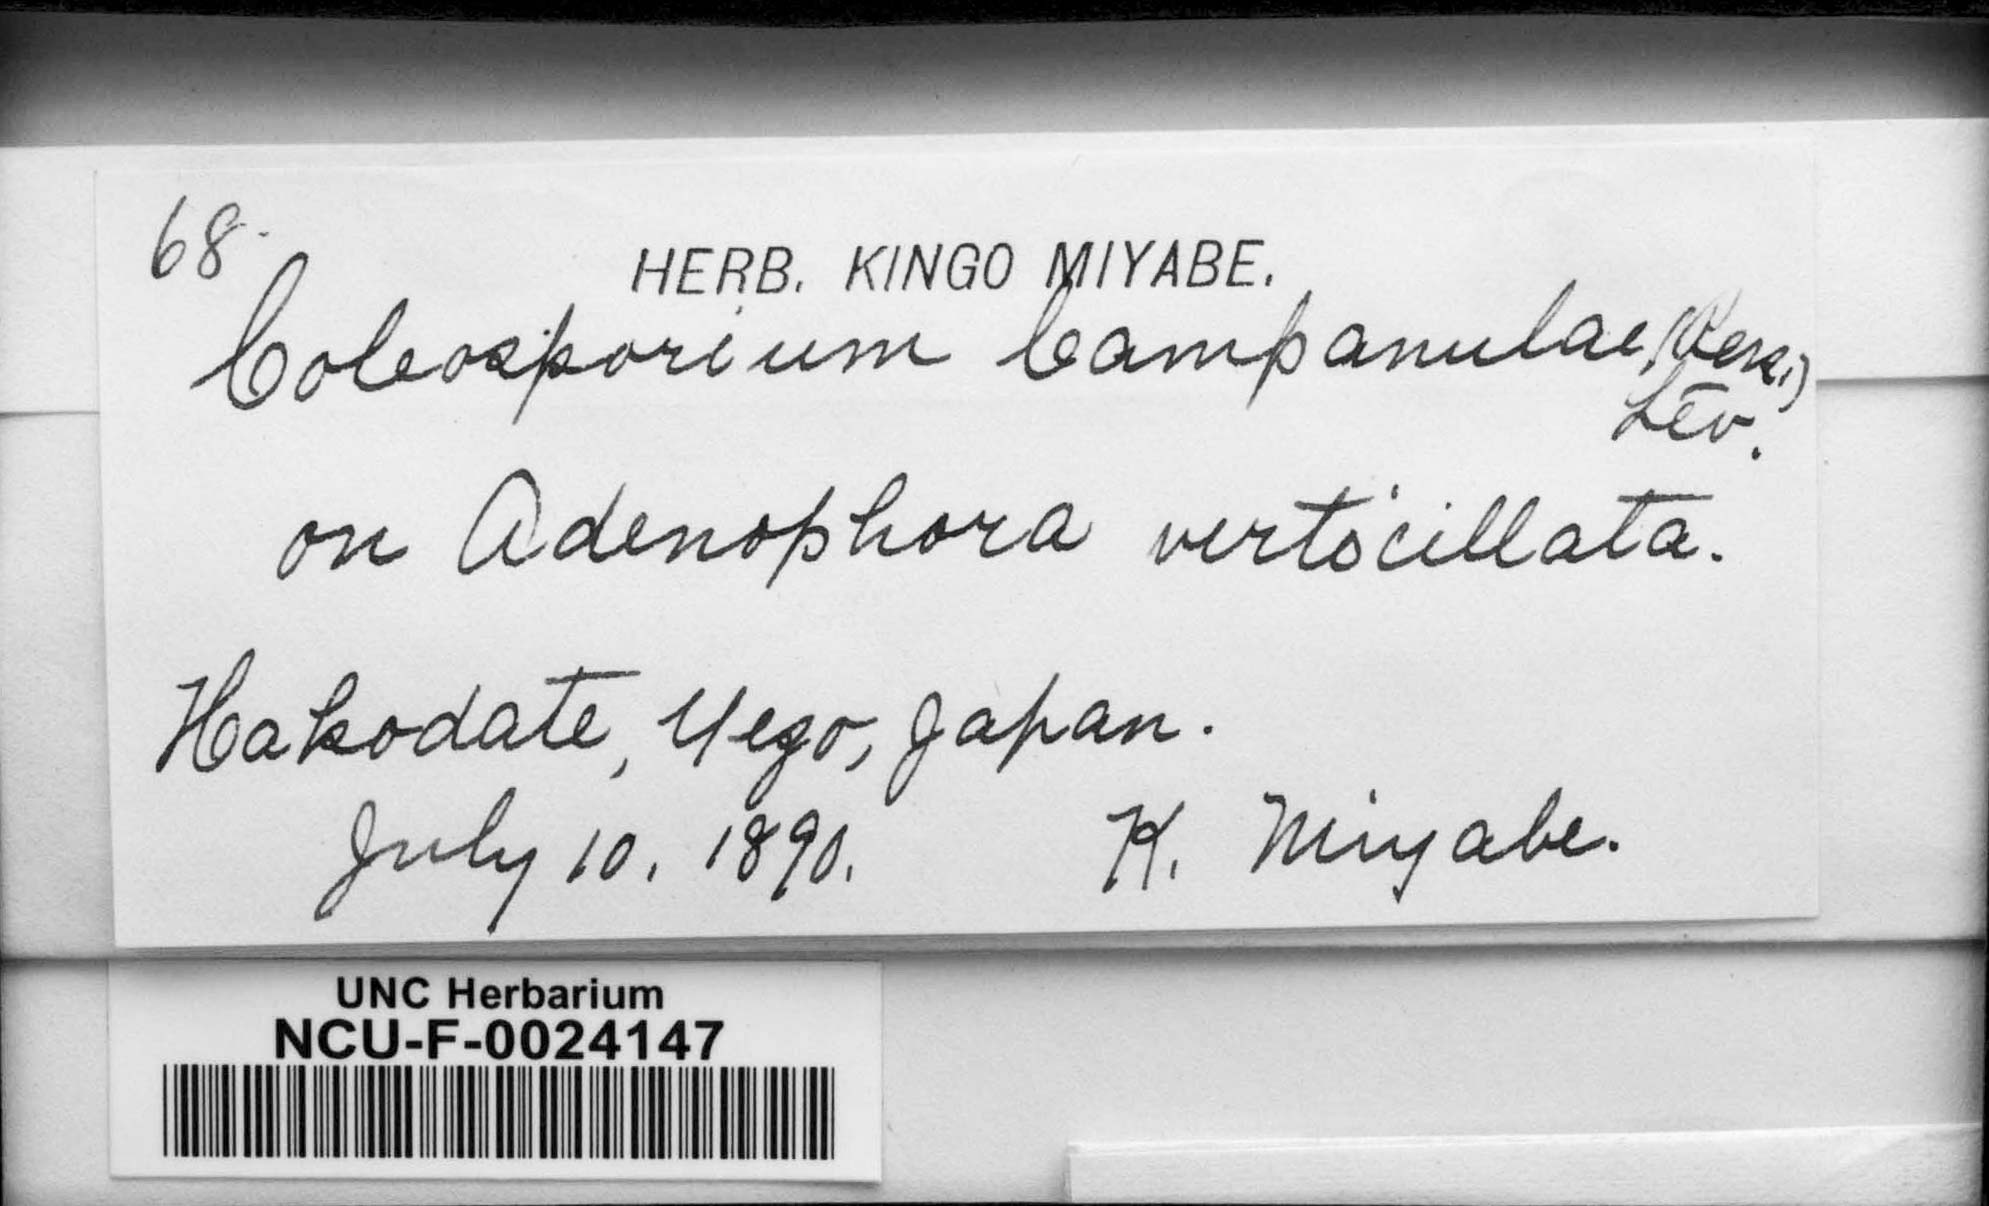 68.
HERB. KINGO MIYABE.
Coleosporium Campanulae, (Pers.)
Lév.
on Adenophora verticillata.
Hakodate, Yezo, Japan.
July 10. 1890. K. Miyabe.
UNC Herbarium
NCU-F-0024147